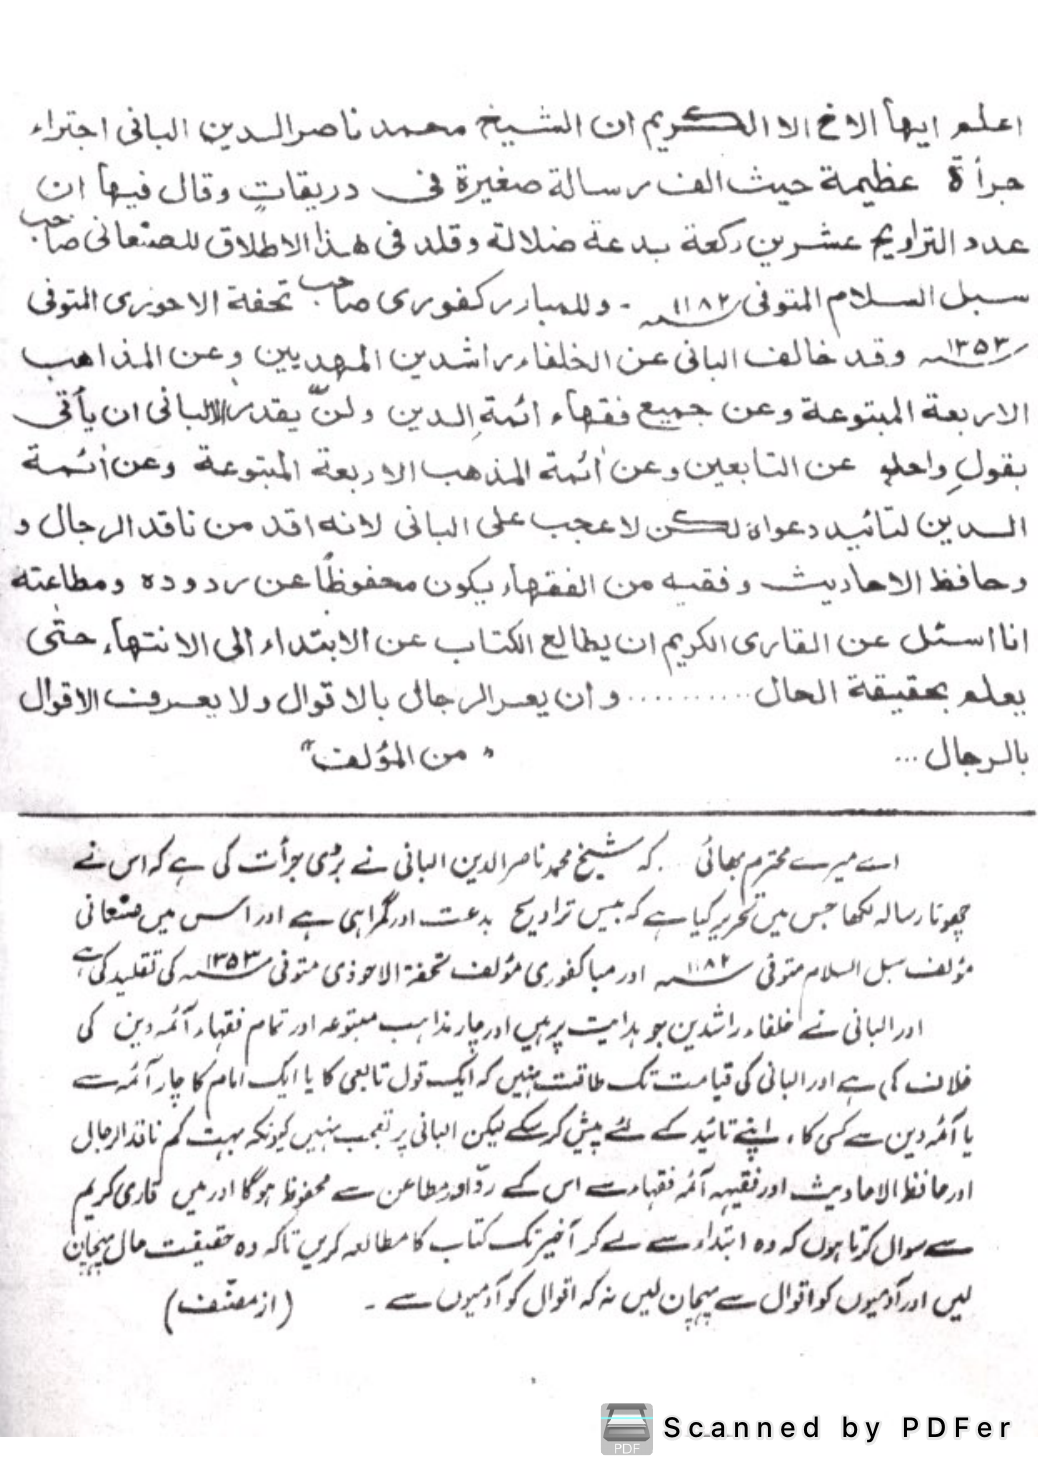 اعلم ايها الاخ الا الكريم ان الشيخ محمد ناصر الدين البانى اجتراء
جرأة عظيمة حيث الف رسالة صغيرة فى دريقاتٍ وقال فيها ان
عدد التراويح عشرين ركعة بدعة ضلالة وقلد فى هذا الاطلاق للصنعانى صاحب
سبل السلام المتوفى ١١٨٢ - وللمباركفورى صاحب تحفة الاحوزى المتوفى
١٣٥٣ وقد خالف البانى عن الخلفاء راشدين المهديين وعن المذاهب
الاربعة المبتوعة وعن جميع فقهاء ائمة الدين ولنّ يقدر الالبانى ان يأتى
بقولٍ واحدٍ عن التابعين وعن أئمة المذهب الاربعة المبتوعة وعن أئمة
الدين لتائيد دعواه لكن لا عجب على البانى لانه اقد من ناقد الرجال و
وحافظ الاحاديث وفقيه من الفقهاء يكون محفوظاً عن ردوده ومطاعته
انا اسئل عن القارى الكريم ان يطالع الكتاب عن الابتداء الى الانتهاء حتٰى
يعلم بحقيقة الحال .......... و ان يعر الرجال بالاقوال ولا يعرف الاقوال
بالرجال ... " من المؤلف "
اے میرے محترم بھائی .. کہ شیخ محمد ناصر الدین البانی نے بڑی جرأت کی ہے کہ اس نے
چھوٹا رسالہ لکھا جس میں تحریر کیا ہے کہ بیس تراویح بدعت اور گمراہی ہے اور اس میں صنعانی
مؤلف سبل السلام متوفی ١١٨٢ اور مباکفوری مؤلف تحفۃ الاحوذی متوفی ١٣٥٣ کی تقلید کی ہے
اور البانی نے خلفاء راشدین جو ہدایت پر ہیں اور چار مذاہب مبتوعہ اور تمام فقہاء آئمہ دین کی
خلاف کی ہے اور البانی کی قیامت تک طاقت نہیں کہ ایک قول تابعی کا یا ایک امام کا چار آئمہ سے
یا آئمہ دین سے کسی کا، اپنے تائید کے لئے پیش کر سکے لیکن البانی پر تعجب نہیں کیونکہ بہت کم ناقد الرجال
اور حافظ الاحادیث اور فقیہہ آئمہ فقہاء سے اس کے ردّ اور مطاعن سے محفوظ ہوگا اور میں قاری کریم
سے سوال کرتا ہوں کہ وہ ابتداء سے لے کر آخیر تک کتاب کا مطالعہ کریں تاکہ وہ حقیقت حال پہچان
لیں اور آدمیوں کو اقوال سے پہچان لیں نہ کہ اقوال کو آدمیوں سے ۔ (از مصنّف)
PDF Scanned by PDFer